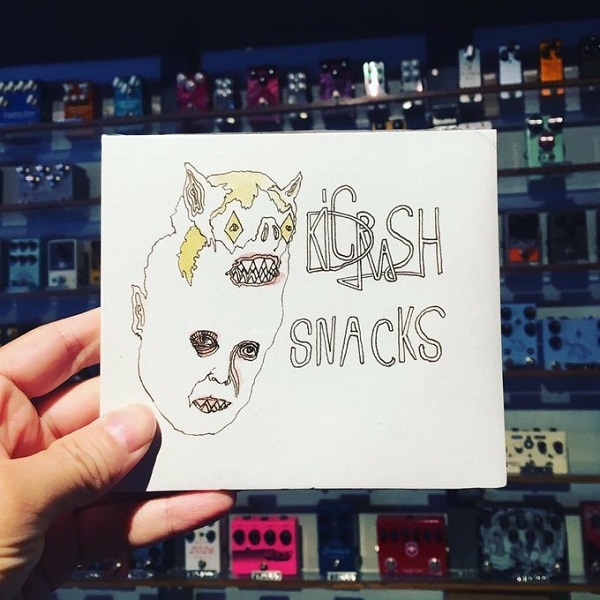 KiDCRASH
SNACKS